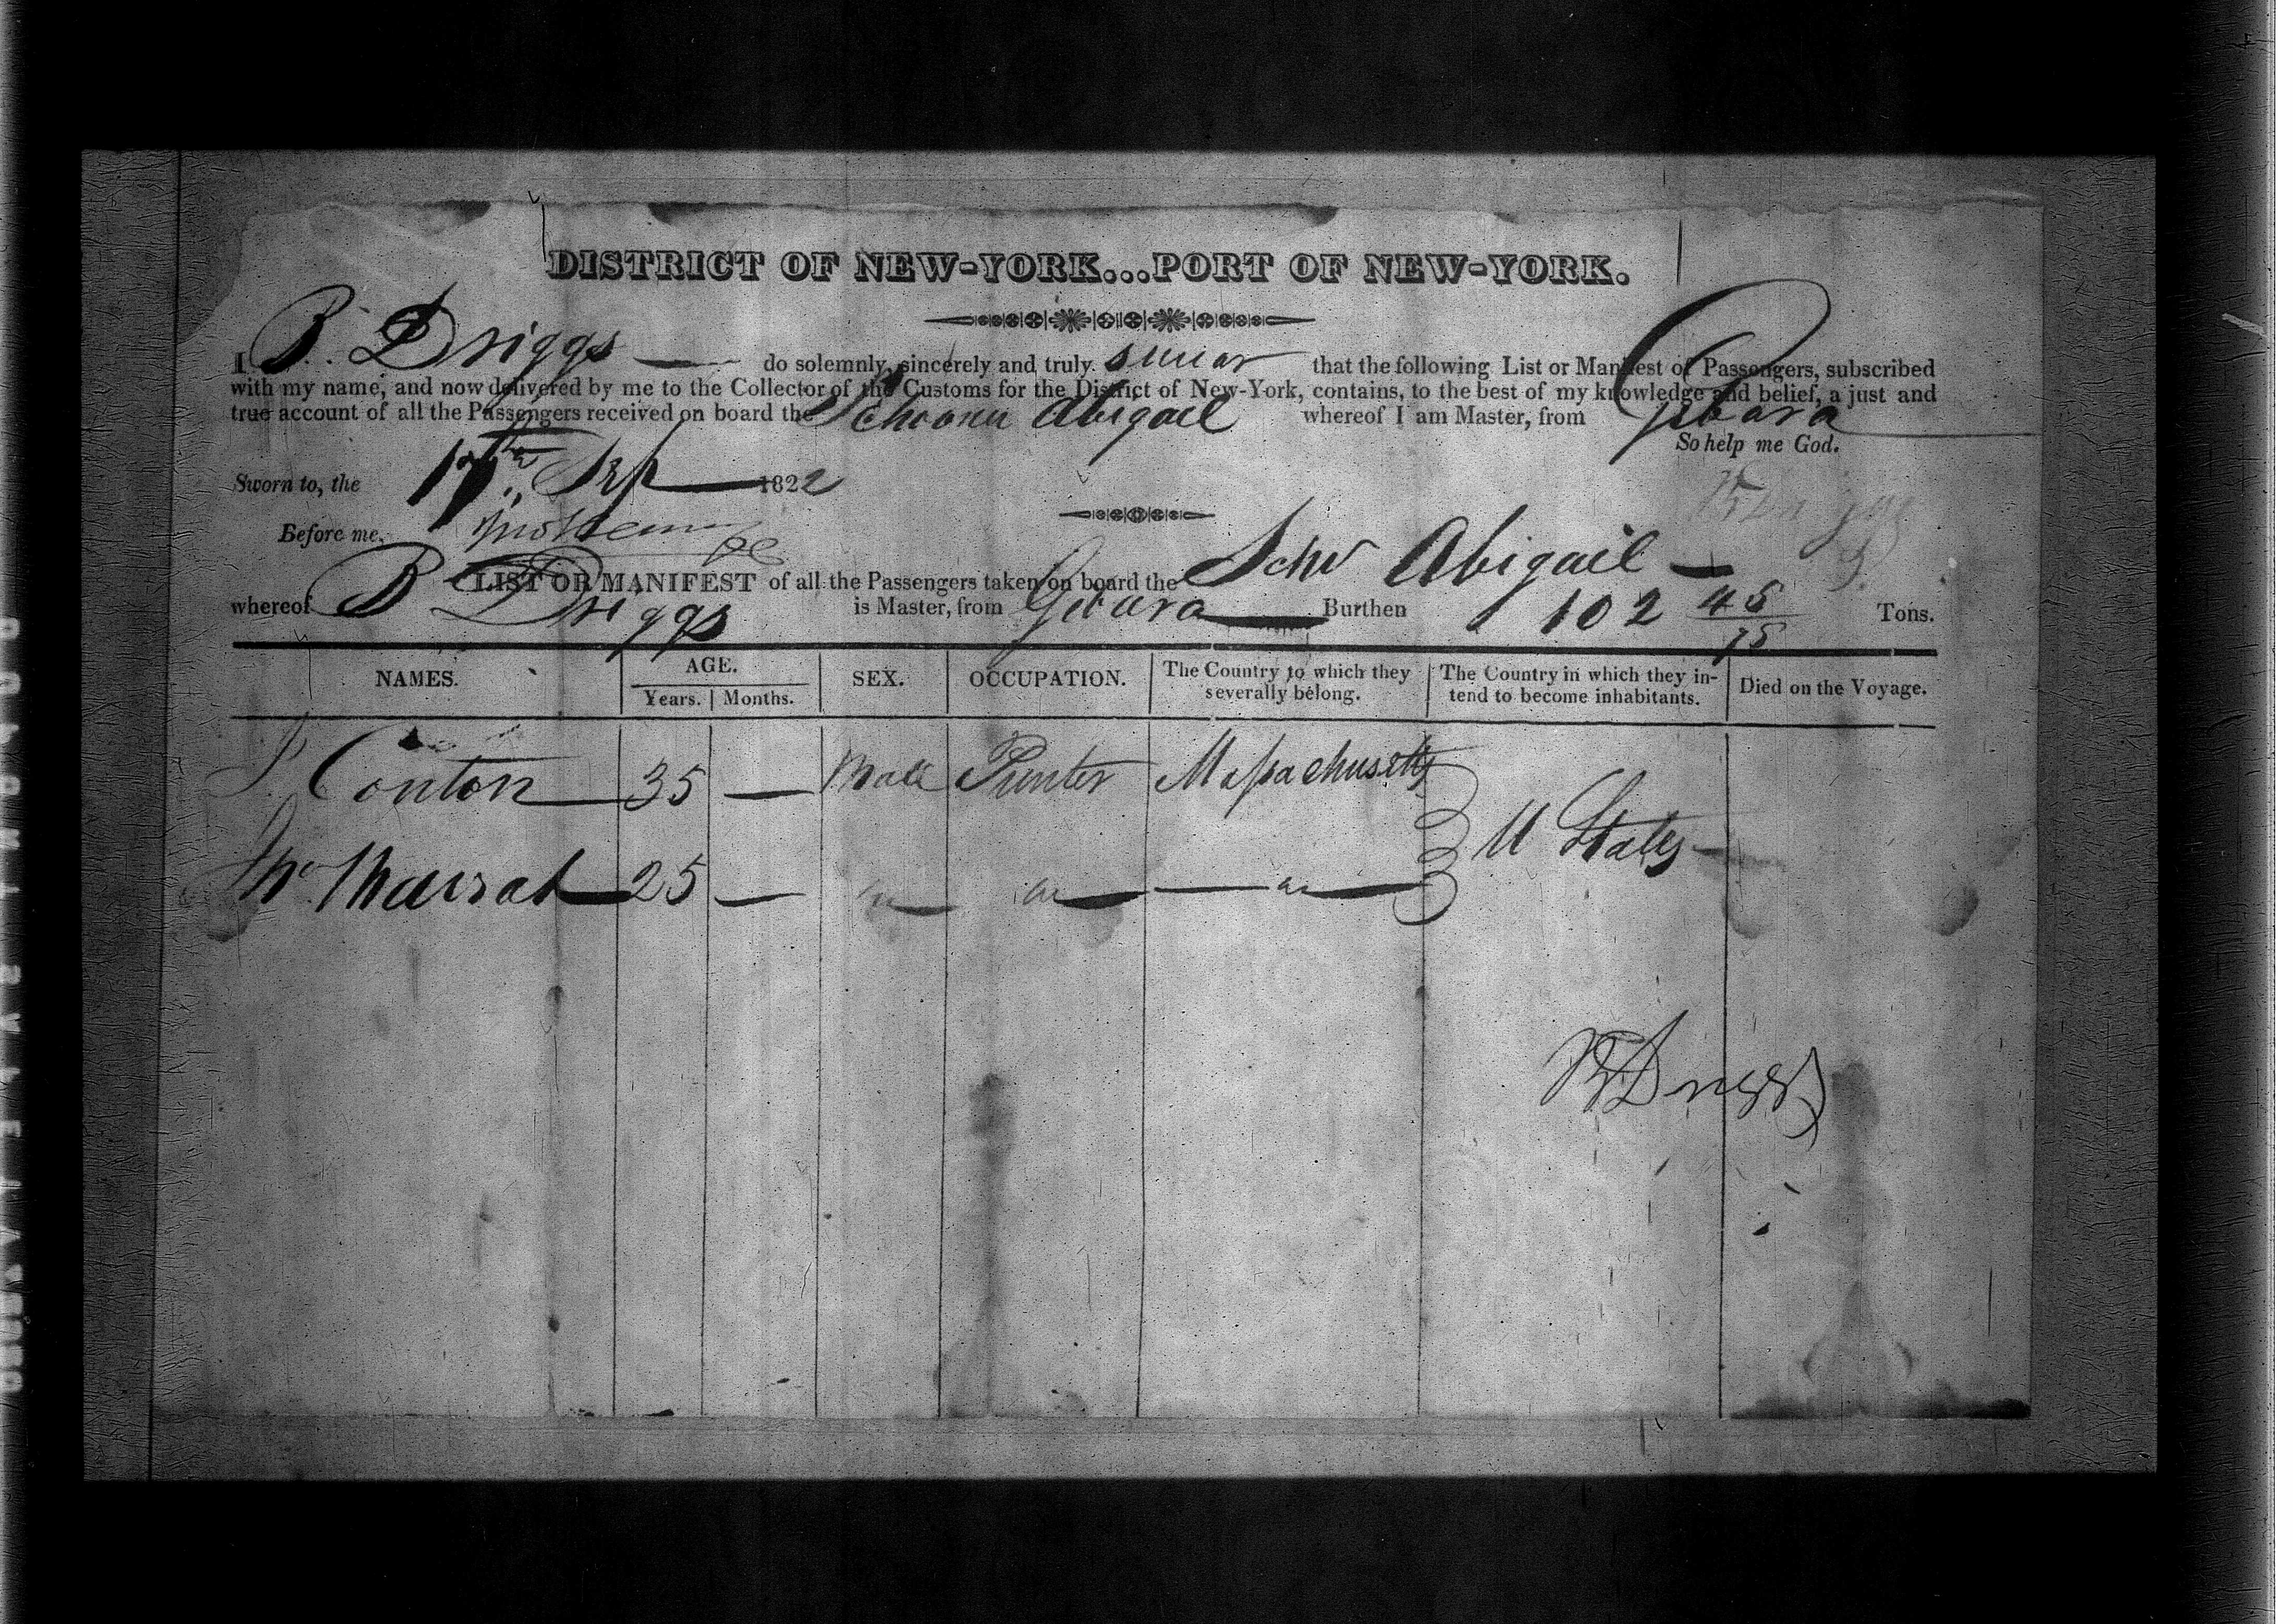 DISTRICT OF NEW-YORK...PORT OF NEW-YORK.
I B. Driggs do solemnly, sincerely and truly swear that the following List or Manifest of Passengers, subscribed
with my name, and now delivered by me to the Collector of the Customs for the District of New-York, contains, to the best of my knowledge and belief, a just and
true account of all the Passengers received on board the Schooner Abigail whereof I am Master, from Gibara
So help me God.
Sworn to, the 17th Sep 1822
Before me,
LIST OR MANIFEST of all the Passengers taken on board the Schr Abigail
whereof B Driggs is Master, from Gibara Burthen 102 Tons.
NAMES. AGE. SEX. OCCUPATION. The Country to which they severally belong. The Country in which they intend to become inhabitants. Died on the Voyage.
Years. Months.
Conton 35 — Male Massachusetts
U States
25 —
B Driggs